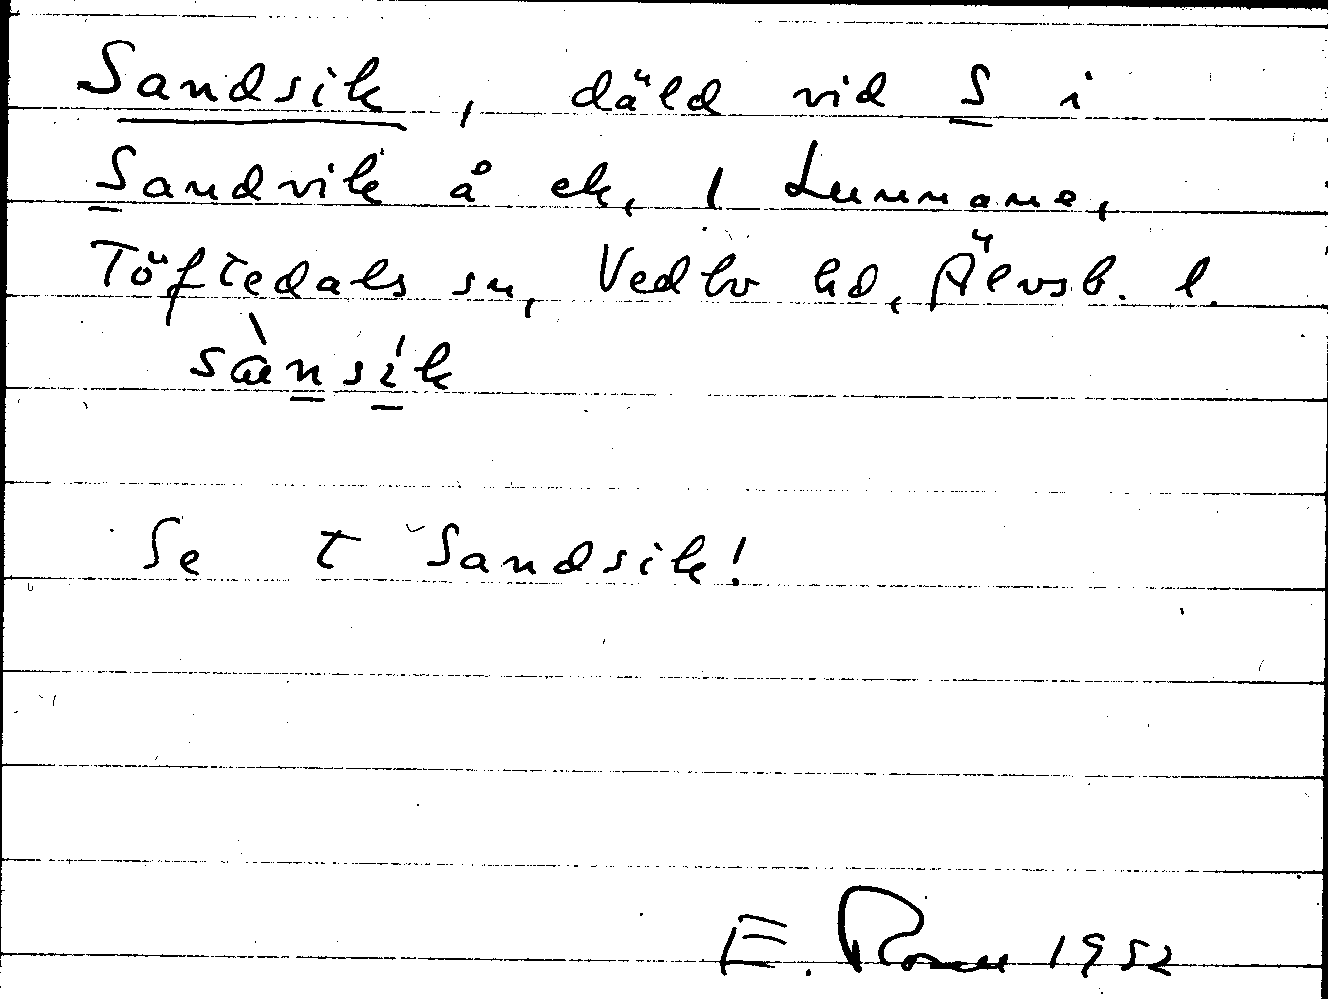 Sandsik, däld vid S i
Sandvik å ek, 1 Lunnane,
Töftedals sn, Vedbo hd, Älvsb. l.
sànsík
Se t Sandsik!
E. Rosell 1952